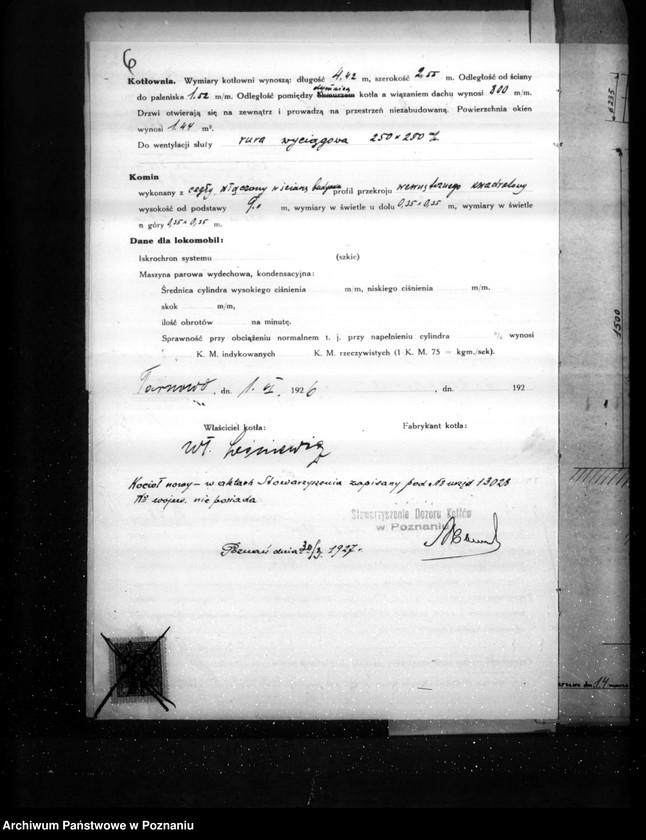 6
Kotłownia. Wymiary kotłowni wynoszą: długość 4,42 m, szerokość 2,55 m. Odległość od ściany
do paleniska 1.52 m/m. Odległość pomiędzy kotła a wiązaniem dachu wynosi 300 m/m.
Drzwi otwierają się na zewnątrz i prowadzą na przestrzeń niezabudowaną. Powierzchnia okien
wynosi 1.44 m².
Do wentylacji służy rura wyciągowa 250 × 250 %
Komin
wykonany z cegły, włączony w ścianę budynku profil przekroju wewnętrznego kwadratowy
wysokość od podstawy 9.0 m, wymiary w świetle u dołu 0,35 × 0,35 m, wymiary w świetle
n góry 0,35 × 0,35 m.
Dane dla lokomobil:
Iskrochron systemu (szkic)
Maszyna parowa wydechowa, kondensacyjna:
Średnica cylindra wysokiego ciśnienia m/m, niskiego ciśnienia m/m.
skok m/m,
ilość obrotów na minutę.
Sprawność przy obciążeniu normalnem t. j. przy napełnieniu cylindra % wynosi
K. M. indykowanych K. M. rzeczywistych (1 K. M. 75 = kgm./sek).
Tarnowo, dn. 1. VI. 1926 , dn. 192
Właściciel kotła: Fabrykant kotła:
Wł.
Kocioł nowy – w aktach Stowarzyszenia zapisany pod № urzęd 13028
№ wojew. nie posiada
Stowarzyszenie Dozoru Kotłów
w Poznaniu
Poznań dnia 30/3. 1927 r.
6235
1500
dn. 14
Archiwum Państwowe w Poznaniu